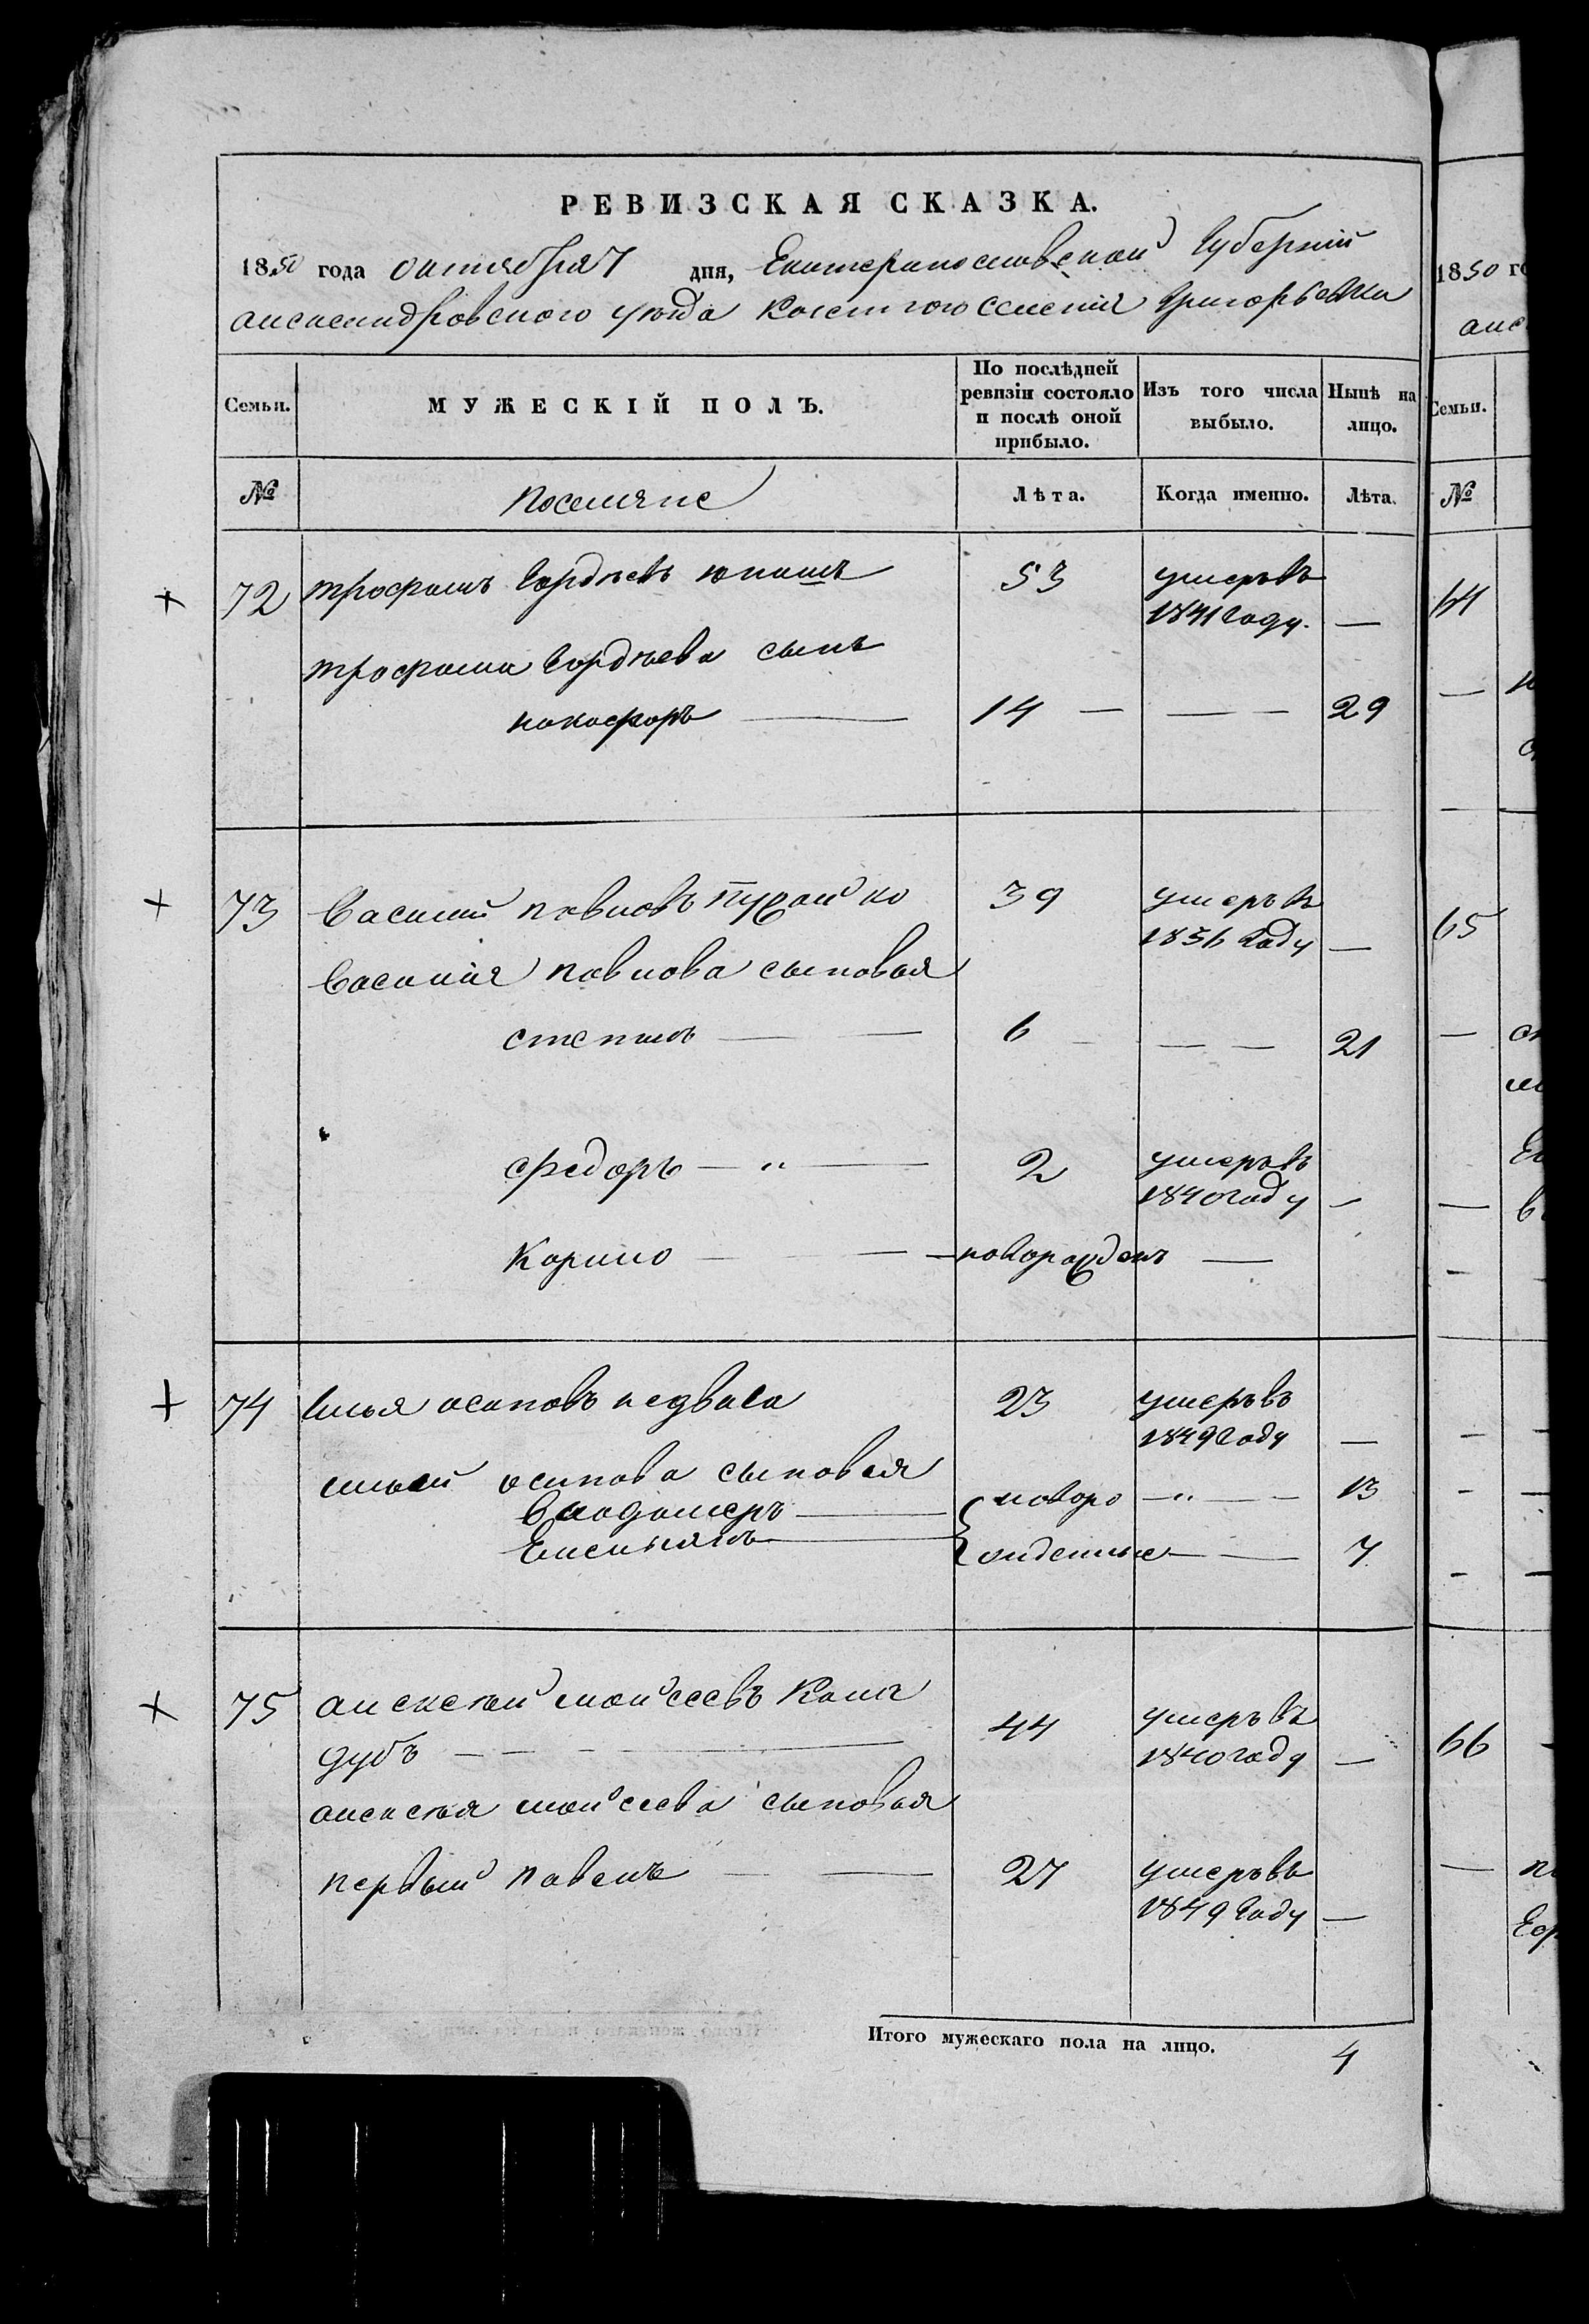 РЕВИЗСКАЯ СКАЗКА.
1850 года октября 7 дня, Екатеринославской Губернiи
александровского уезда казенного селения Григорьевки
Семьи.
МУЖЕСКIЙ ПОЛЪ.
По послѣдней ревизiи состояло и послѣ оной прибыло.
Изъ того числа выбыло.
Нынѣ на лицо.
№
поселяне
Лѣта.
Когда именно.
Лѣта.
72 трофимъ Гордѣевъ 53 умеръ въ
1841 Году. —
трофима Гордѣева сынъ
никифоръ — 14 — — — 29
73 Василий павловъ 39 умеръ въ
1836 Году —
Василия павлова сыновья
степанъ — — 6 — — — 21
федоръ — " — 2 умеръ въ
1840 году —
Кирило — — новорожденъ —
74 илья осиповъ 23 умеръ въ
1849 Году —
ильи осипова сыновья
Владимеръ — новоро — " — — 13
Емельянъ — жденные — — 7
75 алексей моисеевъ Коли
дубъ — — — 44 умеръ въ
1840 году —
алексея моисеева сыновья
первый павелъ — — 27 умеръ въ
1849 Году —
Итого мужескаго пола на лицо. 4
1850 го
Семьи.
№
64
65
66